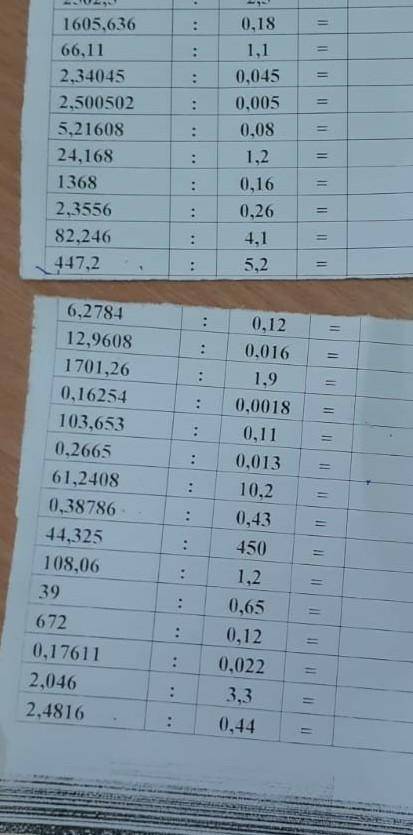 1605,636 : 0,18 =
66,11 : 1,1 =
2,34045 : 0,045 =
2,500502 : 0,005 =
5,21608 : 0,08 =
24,168 : 1,2 =
1368 : 0,16 =
2,3556 : 0,26 =
82,246 : 4,1 =
447,2 : 5,2 =
6,2784 : 0,12 =
12,9608 : 0,016 =
1701,26 : 1,9 =
0,16254 : 0,0018 =
103,653 : 0,11 =
0,2665 : 0,013 =
61,2408 : 10,2 =
0,38786 : 0,43 =
44,325 : 450 =
108,06 : 1,2 =
39 : 0,65 =
672 : 0,12 =
0,17611 : 0,022 =
2,046 : 3,3 =
2,4816 : 0,44 =